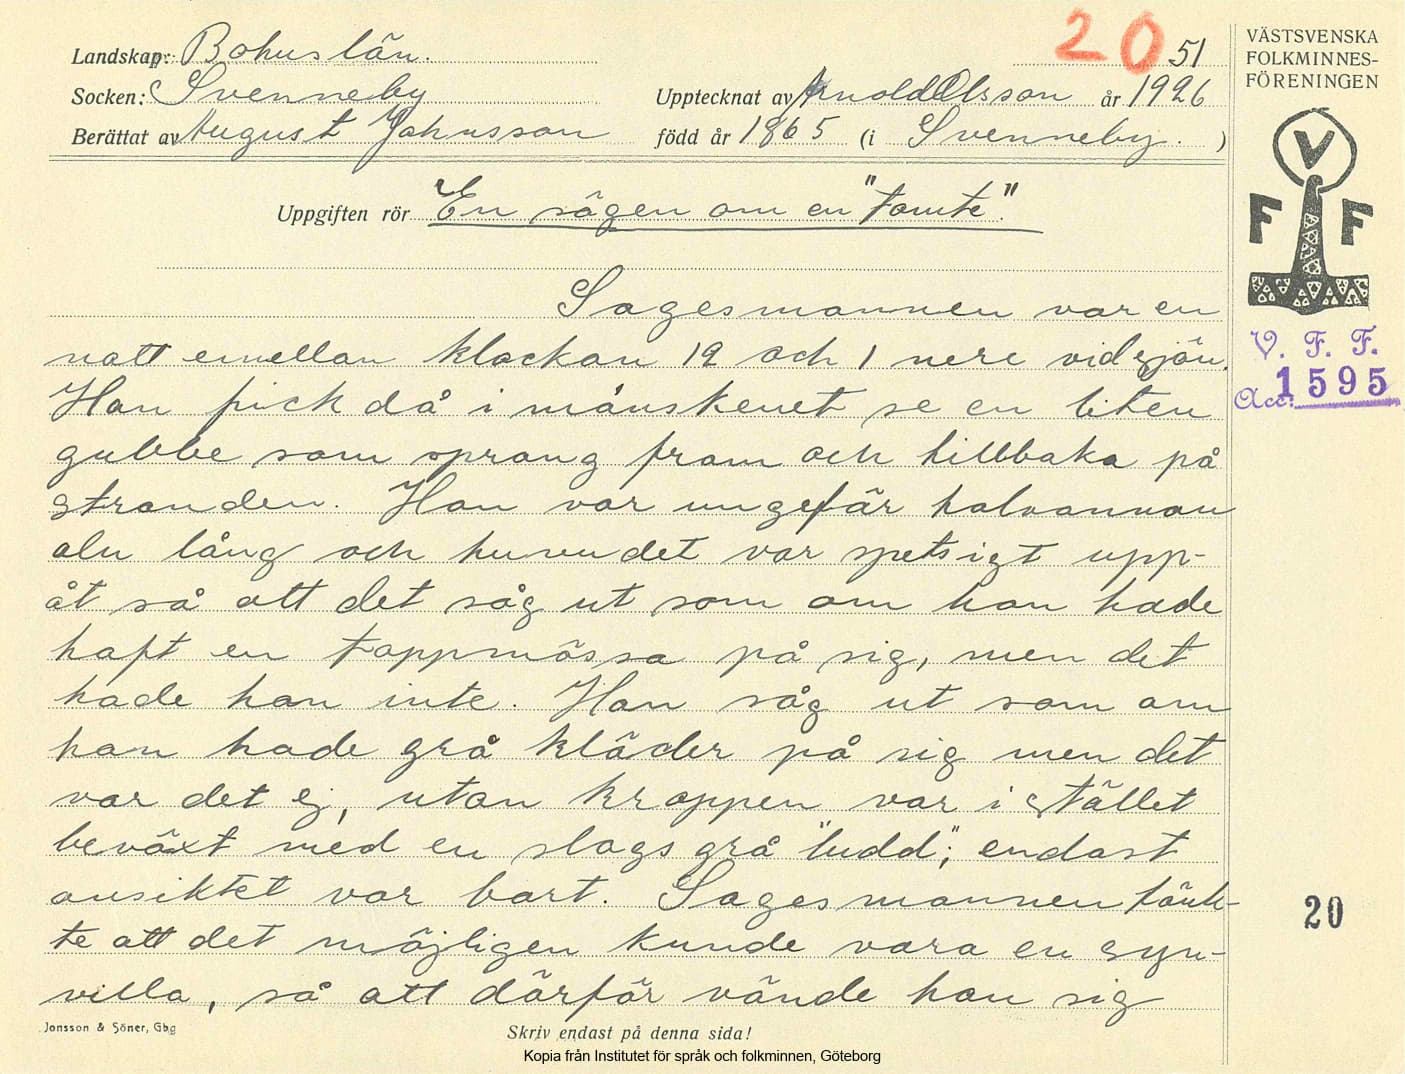 Landskap: Bohuslän.
20 51
Socken: Svenneby
Upptecknat av Arnold Olsson år 1926
Berättat av August Johnsson
född år 1865 (i Svenneby. )
Uppgiften rör En sägen om en "tomte".
Sagesmannen var en
natt emellan klockan 12 och 1 nere vid sjön.
Han fick då i månskenet se en liten
gubbe som sprang fram och tillbaka på
stranden. Han var ungefär halvannan
aln lång och huvudet var spetsigt upp-
åt så att det såg ut som om han hade
haft en toppmössa på sig, men det
hade han inte. Han såg ut som om
han hade grå kläder på sig men det
var det ej, utan kroppen var i stället
beväxt med en slags grå "ludd", endast
ansiktet var bart. Sagesmannen tänk-
te att det möjligen kunde vara en syn-
villa, så att därför vände han sig
Jonsson & Söner, Gbg
Skriv endast på denna sida!
Kopia från Institutet för språk och folkminnen, Göteborg
VÄSTSVENSKA
FOLKMINNES-
FÖRENINGEN
V
F F
V. F. F.
Acc: 1595
20